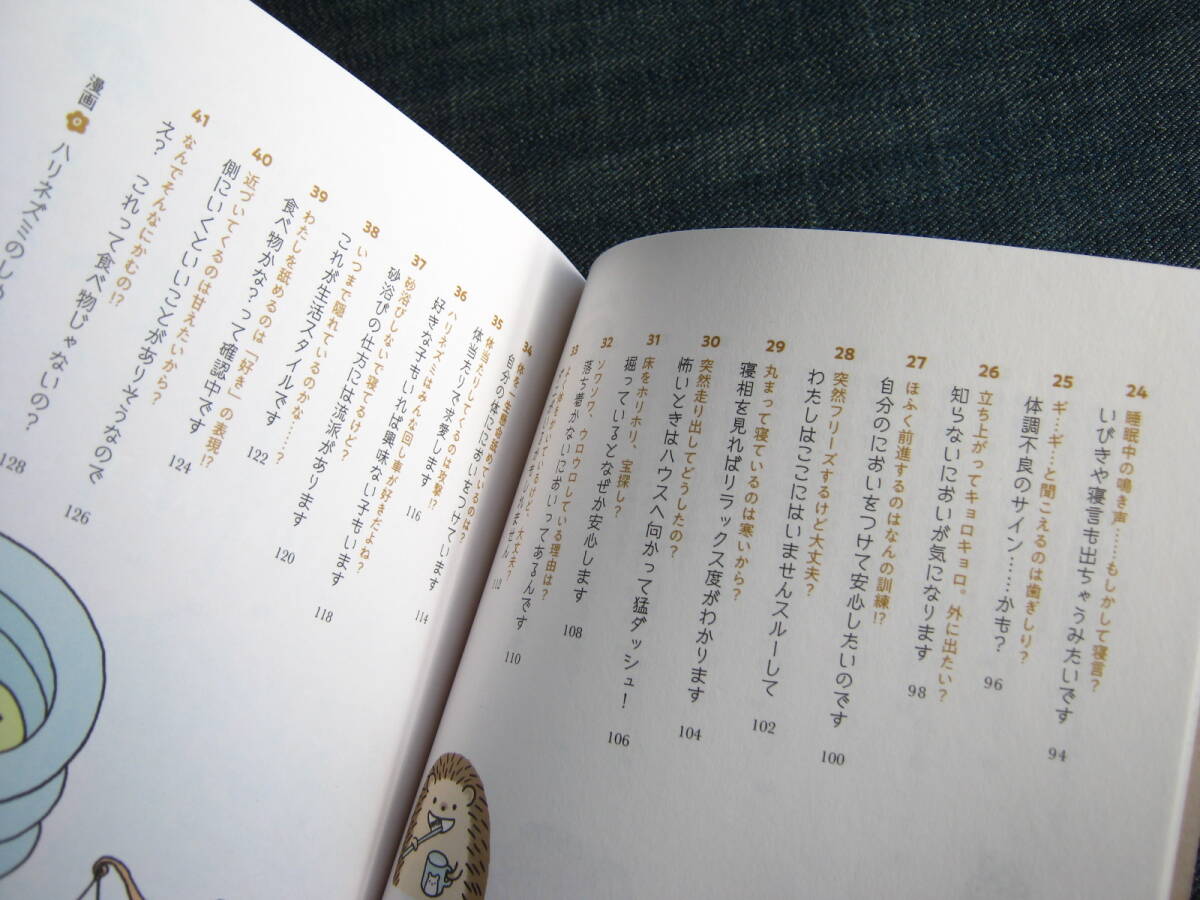 24 睡眠中の鳴き声……もしかして寝言?
いびきや寝言も出ちゃうみたいです 94
25 ギ…ギ…と聞こえるのは歯ぎしり?
体調不良のサイン……かも? 96
26 立ち上がってキョロキョロ。外に出たい?
知らないにおいが気になります 98
27 ほふく前進するのはなんの訓練!?
自分のにおいをつけて安心したいのです 100
28 突然フリーズするけど大丈夫?
わたしはここにはいませんスルーして 102
29 丸まって寝ているのは寒いから?
寝相を見ればリラックス度がわかります 104
30 突然走り出してどうしたの?
怖いときはハウスへ向かって猛ダッシュ! 106
31 床をホリホリ、宝探し?
掘っているとなぜか安心します 108
32 ソワソワ、ウロウロしている理由は?
落ち着かないにおいってあるんです 110
33
大丈夫?
112
34 体を一生懸命舐めているのは?
自分の体ににおいをつけています 114
35 体当たりしてくるのは攻撃!?
体当たりで求愛します 116
36 ハリネズミはみんな回し車が好きだよね?
好きな子もいれば興味ない子もいます 118
37 砂浴びしないで寝てるけど?
砂浴びの仕方には流派があります 120
38 いつまで隠れているのかな……?
これが生活スタイルです 122
39 わたしを舐めるのは「好き」の表現!?
食べ物かな?って確認中です 124
40 近づいてくるのは甘えたいから?
側にいくといいことがありそうなので 126
41 なんでそんなにかむの!?
え? これって食べ物じゃないの? 128
漫画 ハリネズミのし